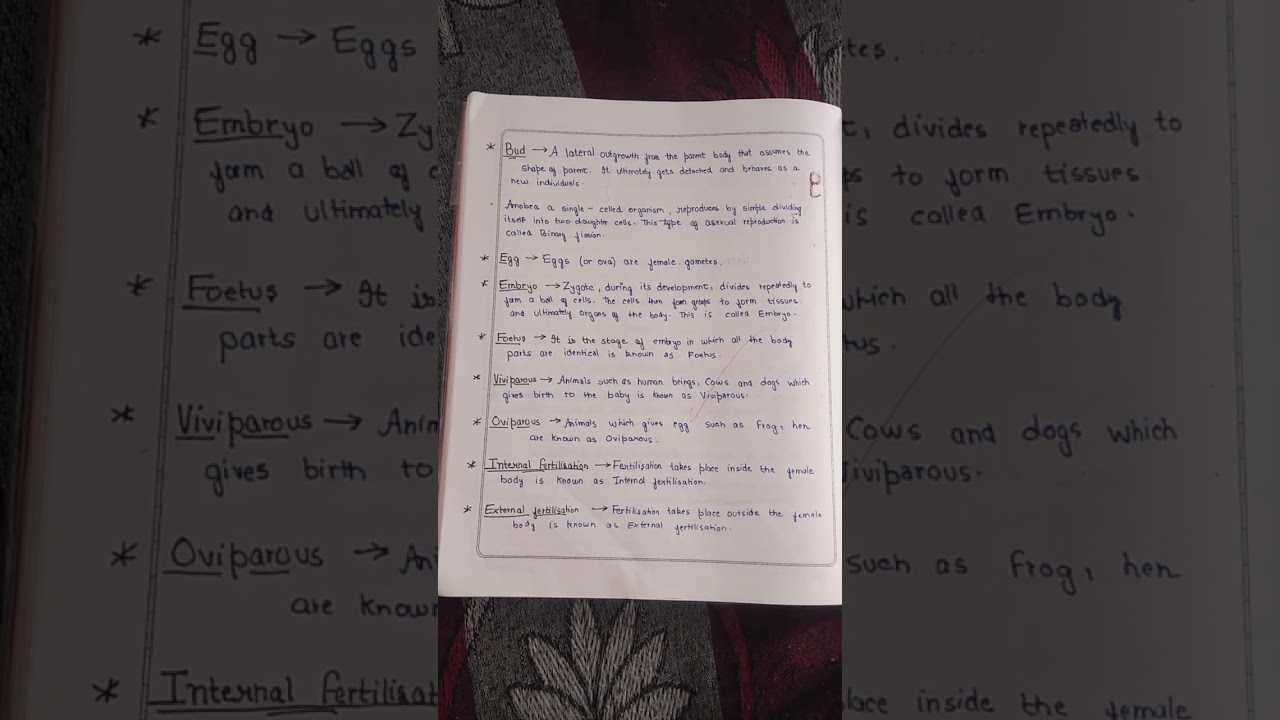 * Bud → A lateral outgrowth from the parent body that assumes the
shape of parent. It ultimately gets detached and behaves as a
new individuals.
Amobea a single - celled organism, reproduces by simple dividing
itself into two daughter cells. This type of asexual reproduction is
called Binary fission.
* Egg → Eggs (or ova) are female gametes.
* Embryo → Zygote, during its development, divides repeatedly to
form a ball of cells. The cells then form groups to form tissues
and ultimately organs of the body. This is called Embryo.
* Foetus → It is the stage of embryo in which all the body
parts are identical is known as Foetus.
* Viviparous → Animals such as human beings, Cows and dogs which
gives birth to the baby is known as Viviparous.
* Oviparous → Animals which gives egg such as Frog, hen
are known as Oviparous.
* Internal fertilisation → Fertilisation takes place inside the female
body is known as Internal fertilisation.
* External fertilisation → Fertilisation takes place outside the female
body is known as External fertilisation.